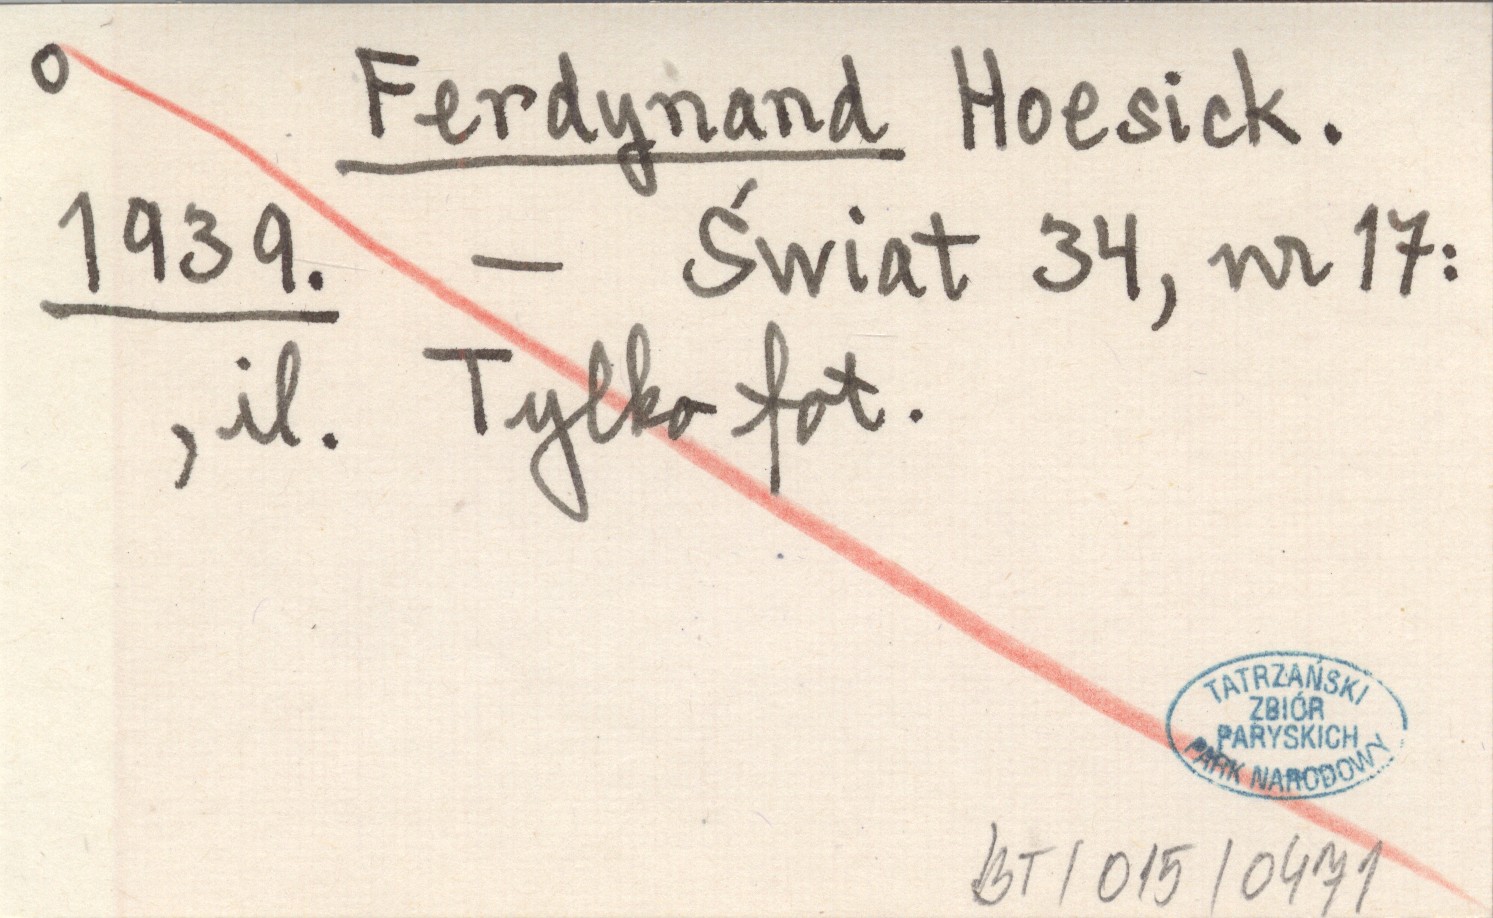 o Ferdynand Hoesick.
1939. — Świat 34, nr 17:
, il. Tylko fot.
TATRZAŃSKI
ZBIÓR
PARYSKICH
PARK NARODOWY
BT / 015 / 0471